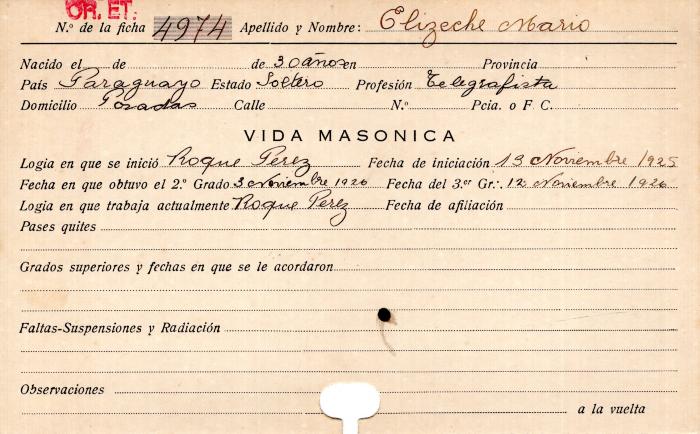 OR. ET:
N.º de la ficha 4974 Apellido y Nombre: Elizeche Mario
Nacido el de de 30 años en Provincia
País Paraguayo Estado Soltero Profesión Telegrafista
Domicilio Posadas Calle N.º Pcia. o F C.
VIDA MASONICA
Logia en que se inició Roque Perez Fecha de iniciación 13 Noviembre 1925
Fecha en que obtuvo el 2.º Grado 3 Noviembre 1926 Fecha del 3.er Gr∴ 12 Noviembre 1926
Logia en que trabaja actualmente Roque Perez Fecha de afiliación
Pases quites
Grados superiores y fechas en que se le acordaron
Faltas-Suspensiones y Radiación
Observaciones
a la vuelta